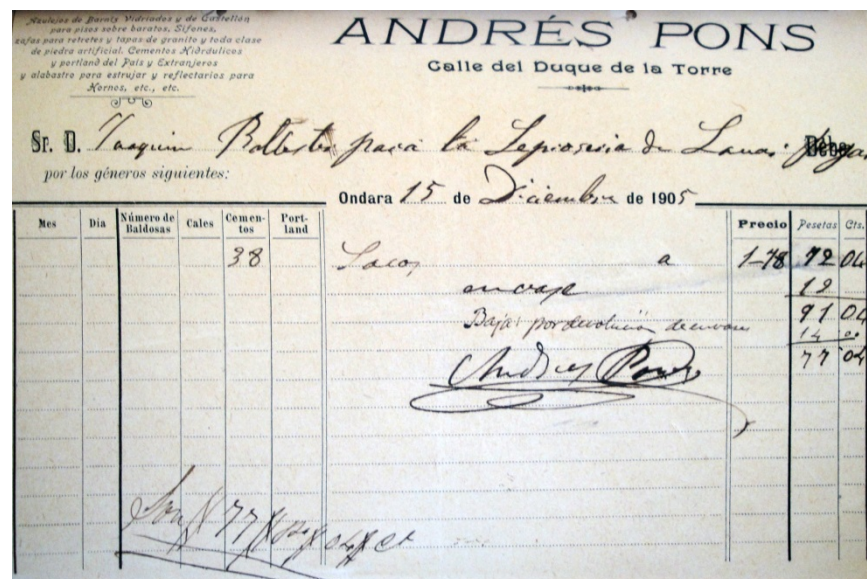 Azulejos de Barato Vidriados y de Castellón
para pisos sobre baratos, Sifones,
zafas para retretes y tapas de granito y toda clase
de piedra artificial. Cementos Hidráulicos
y portland del País y Extranjeros
y alabastro para estrujar y reflectarios para
Hornos, etc., etc.
ANDRÉS PONS
Calle del Duque de la Torre
Sr. D. Joaquin Ballester para la Leproseria de
por los géneros siguientes:
Ondara 15 de Diciembre de 1905
Mes Día Número de Baldosas Cales Cementos Portland Precio Pesetas Cts.
38 Sacos a 1-98 72 04
envase 19
91 04
Baja: por devolución de envases 14 00
77 04
Andres Pons
Son 77 Ptas 04 Ct